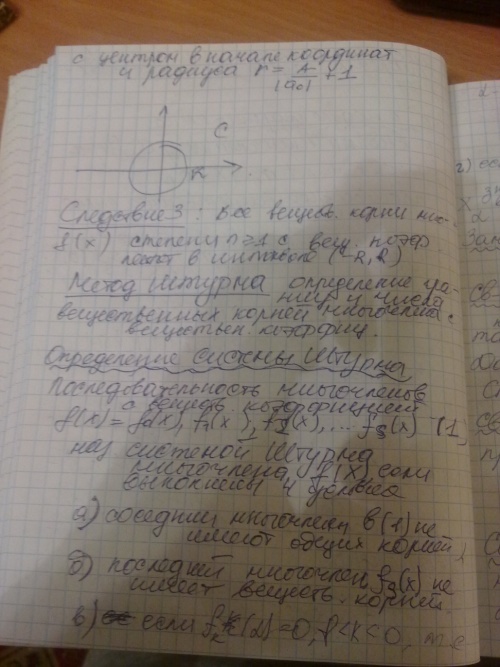 с центром в начале координат
и радиуса r = A/|a₀| + 1
C
R
Следствие 3 : Все веществ. корни мн-
f(x) степени n ≥ 1 с вещ. коэф
лежат в интервале (-R, R)
Метод Штурма определение гра-
ниц и числа
вещественных корней многочлена с
веществен. коэффиц.
Определение системы Штурма
Последовательность многочленов
с веществ. коэффициен
f(x) = f₀(x), f₁(x), f₂(x), ... fₛ(x) (1)
наз системой Штурма
многочлена f(x) если
выполнены 4 условия
а) соседний многочлен в (1) не
имеют общих корней
б) последний многочлен fₛ(x) не
имеет веществ. корней.
в) если fₖ(α) = 0,